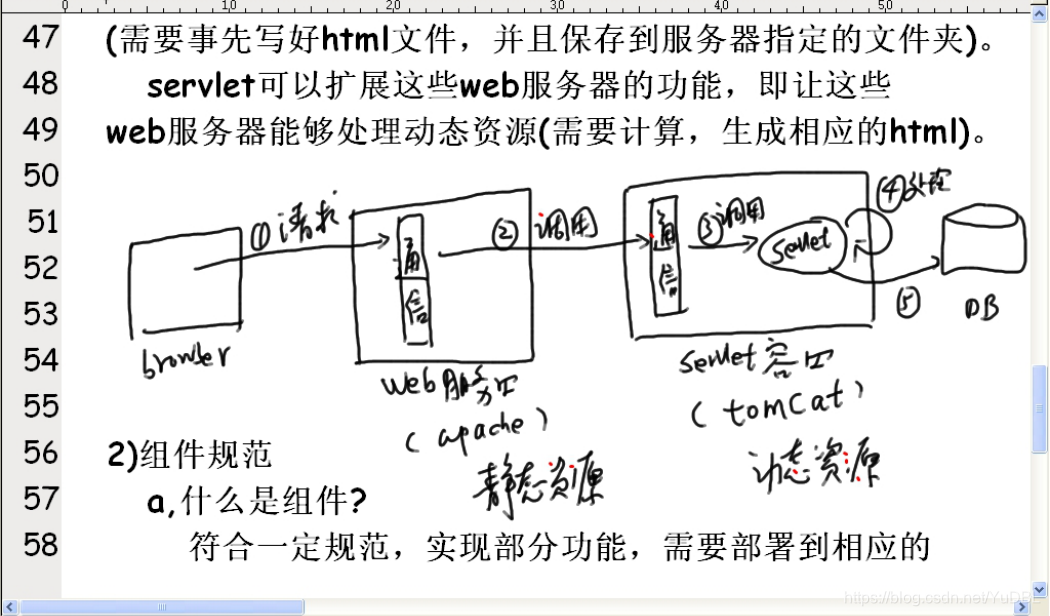 0 10 20 30 40 50
47 (需要事先写好html文件，并且保存到服务器指定的文件夹)。
48 servlet可以扩展这些web服务器的功能，即让这些
49 web服务器能够处理动态资源(需要计算，生成相应的html)。
50
51
52
53
54
55
① 请求
通信
② 调用
通信
③ 调用
servlet
④ 处理
⑤
DB
browser
web服务
(apache)
静态资源
servlet容
(tomcat)
动态资源
56 2)组件规范
57 a,什么是组件?
58 符合一定规范，实现部分功能，需要部署到相应的